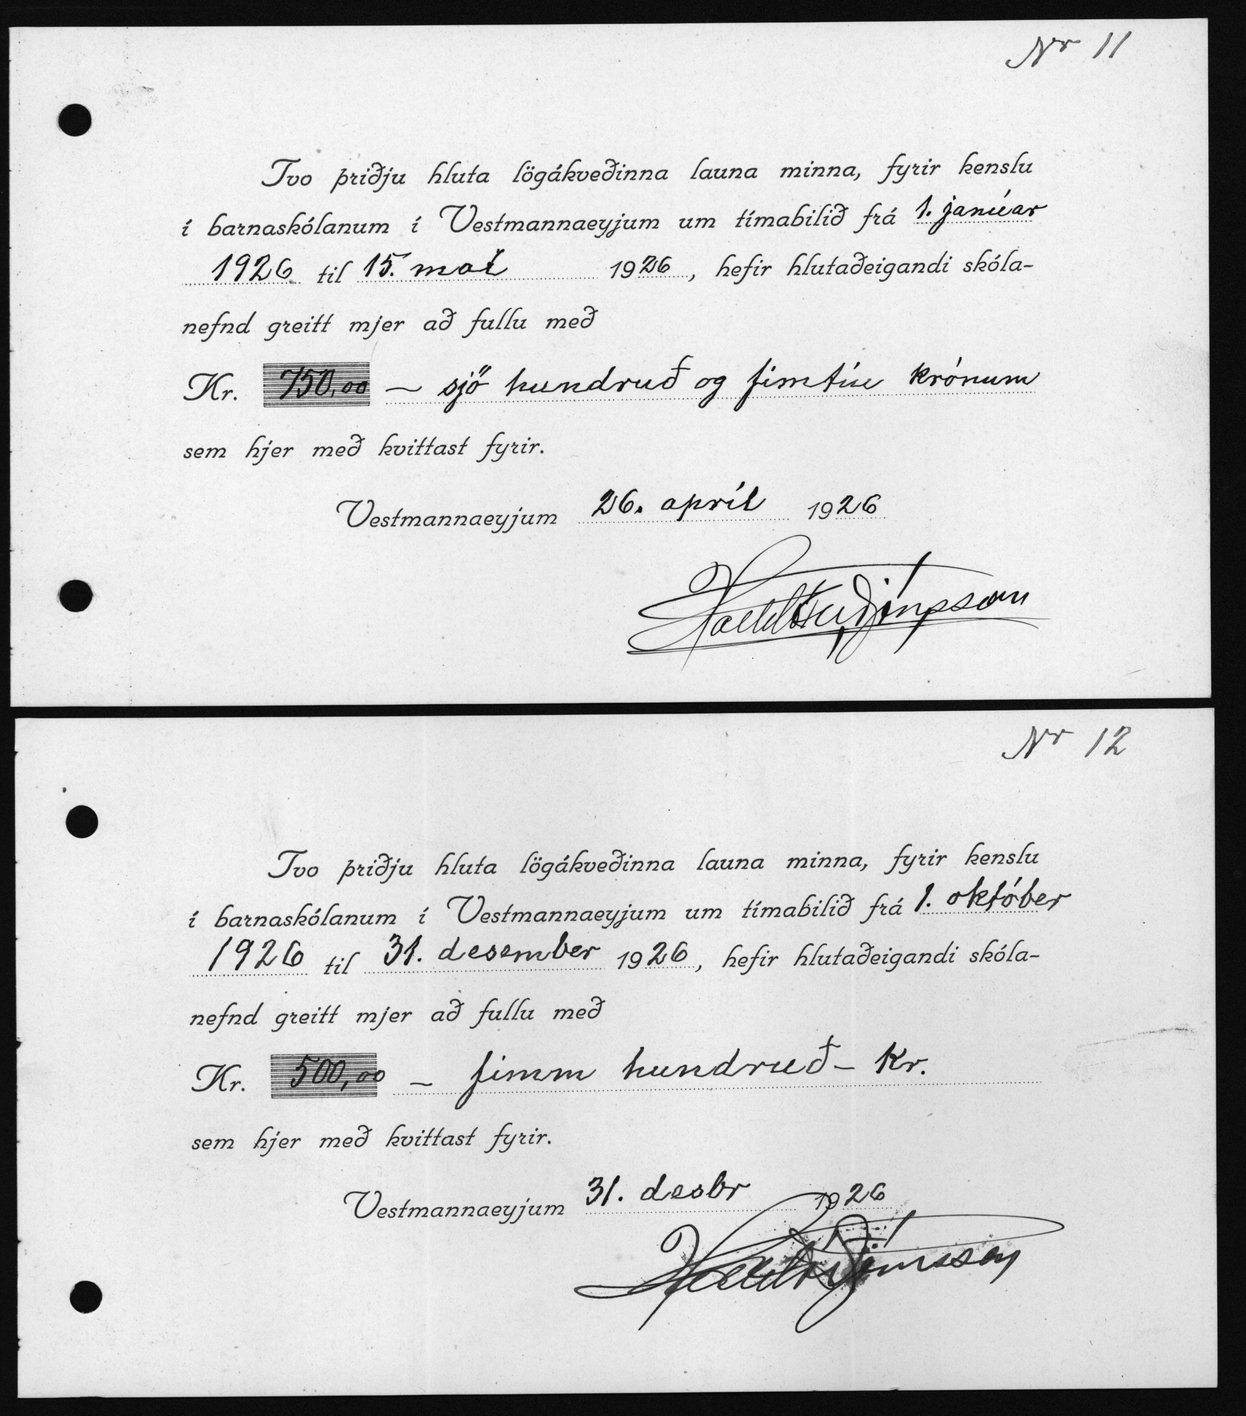 Nr 11
Tvo þriðju hluta lögákveðinna launa minna, fyrir kenslu
í barnaskólanum í Vestmannaeyjum um tímabilið frá 1. janúar
1926 til 15. maí 1926, hefir hlutaðeigandi skóla-
nefnd greitt mjer að fullu með
Kr. 750,00 — sjö hundruð og fimtíu krónum
sem hjer með kvittast fyrir.
Vestmannaeyjum 26. apríl 1926
Jónsson
Nr 12
Tvo þriðju hluta lögákveðinna launa minna, fyrir kenslu
í barnaskólanum í Vestmannaeyjum um tímabilið frá 1. október
1926 til 31. desember 1926, hefir hlutaðeigandi skóla-
nefnd greitt mjer að fullu með
Kr. 500,00 — fimm hundruð – Kr.
sem hjer með kvittast fyrir.
Vestmannaeyjum 31. desbr 1926
Jónsson